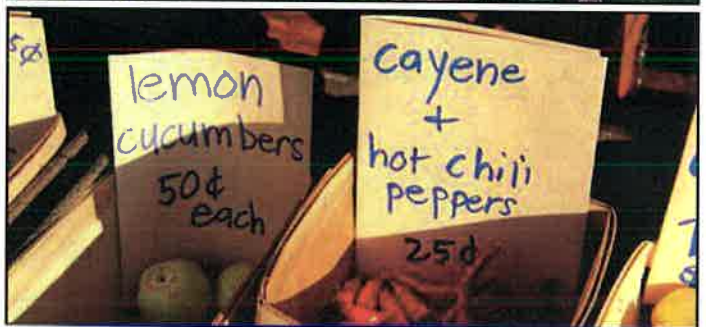 5¢
lemon
cucumbers
50¢
each
cayene
+
hot chili
peppers
25¢